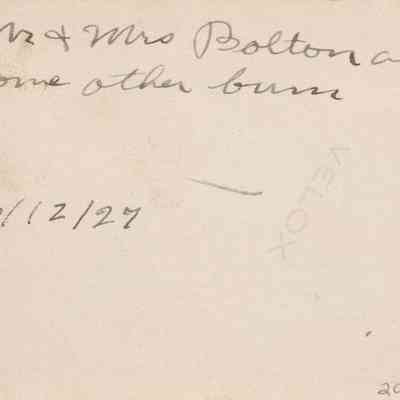 Mr & Mrs Bolton a
ome other bum
/12/27
VELOX
20